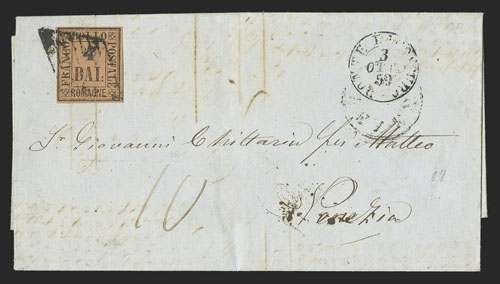 FRANCO BOLLO POSTALE
4
BAI.
ROMAGNE
3
OTT
59
Sr. Giovanni Chittarin per Matteo
10
Venezia